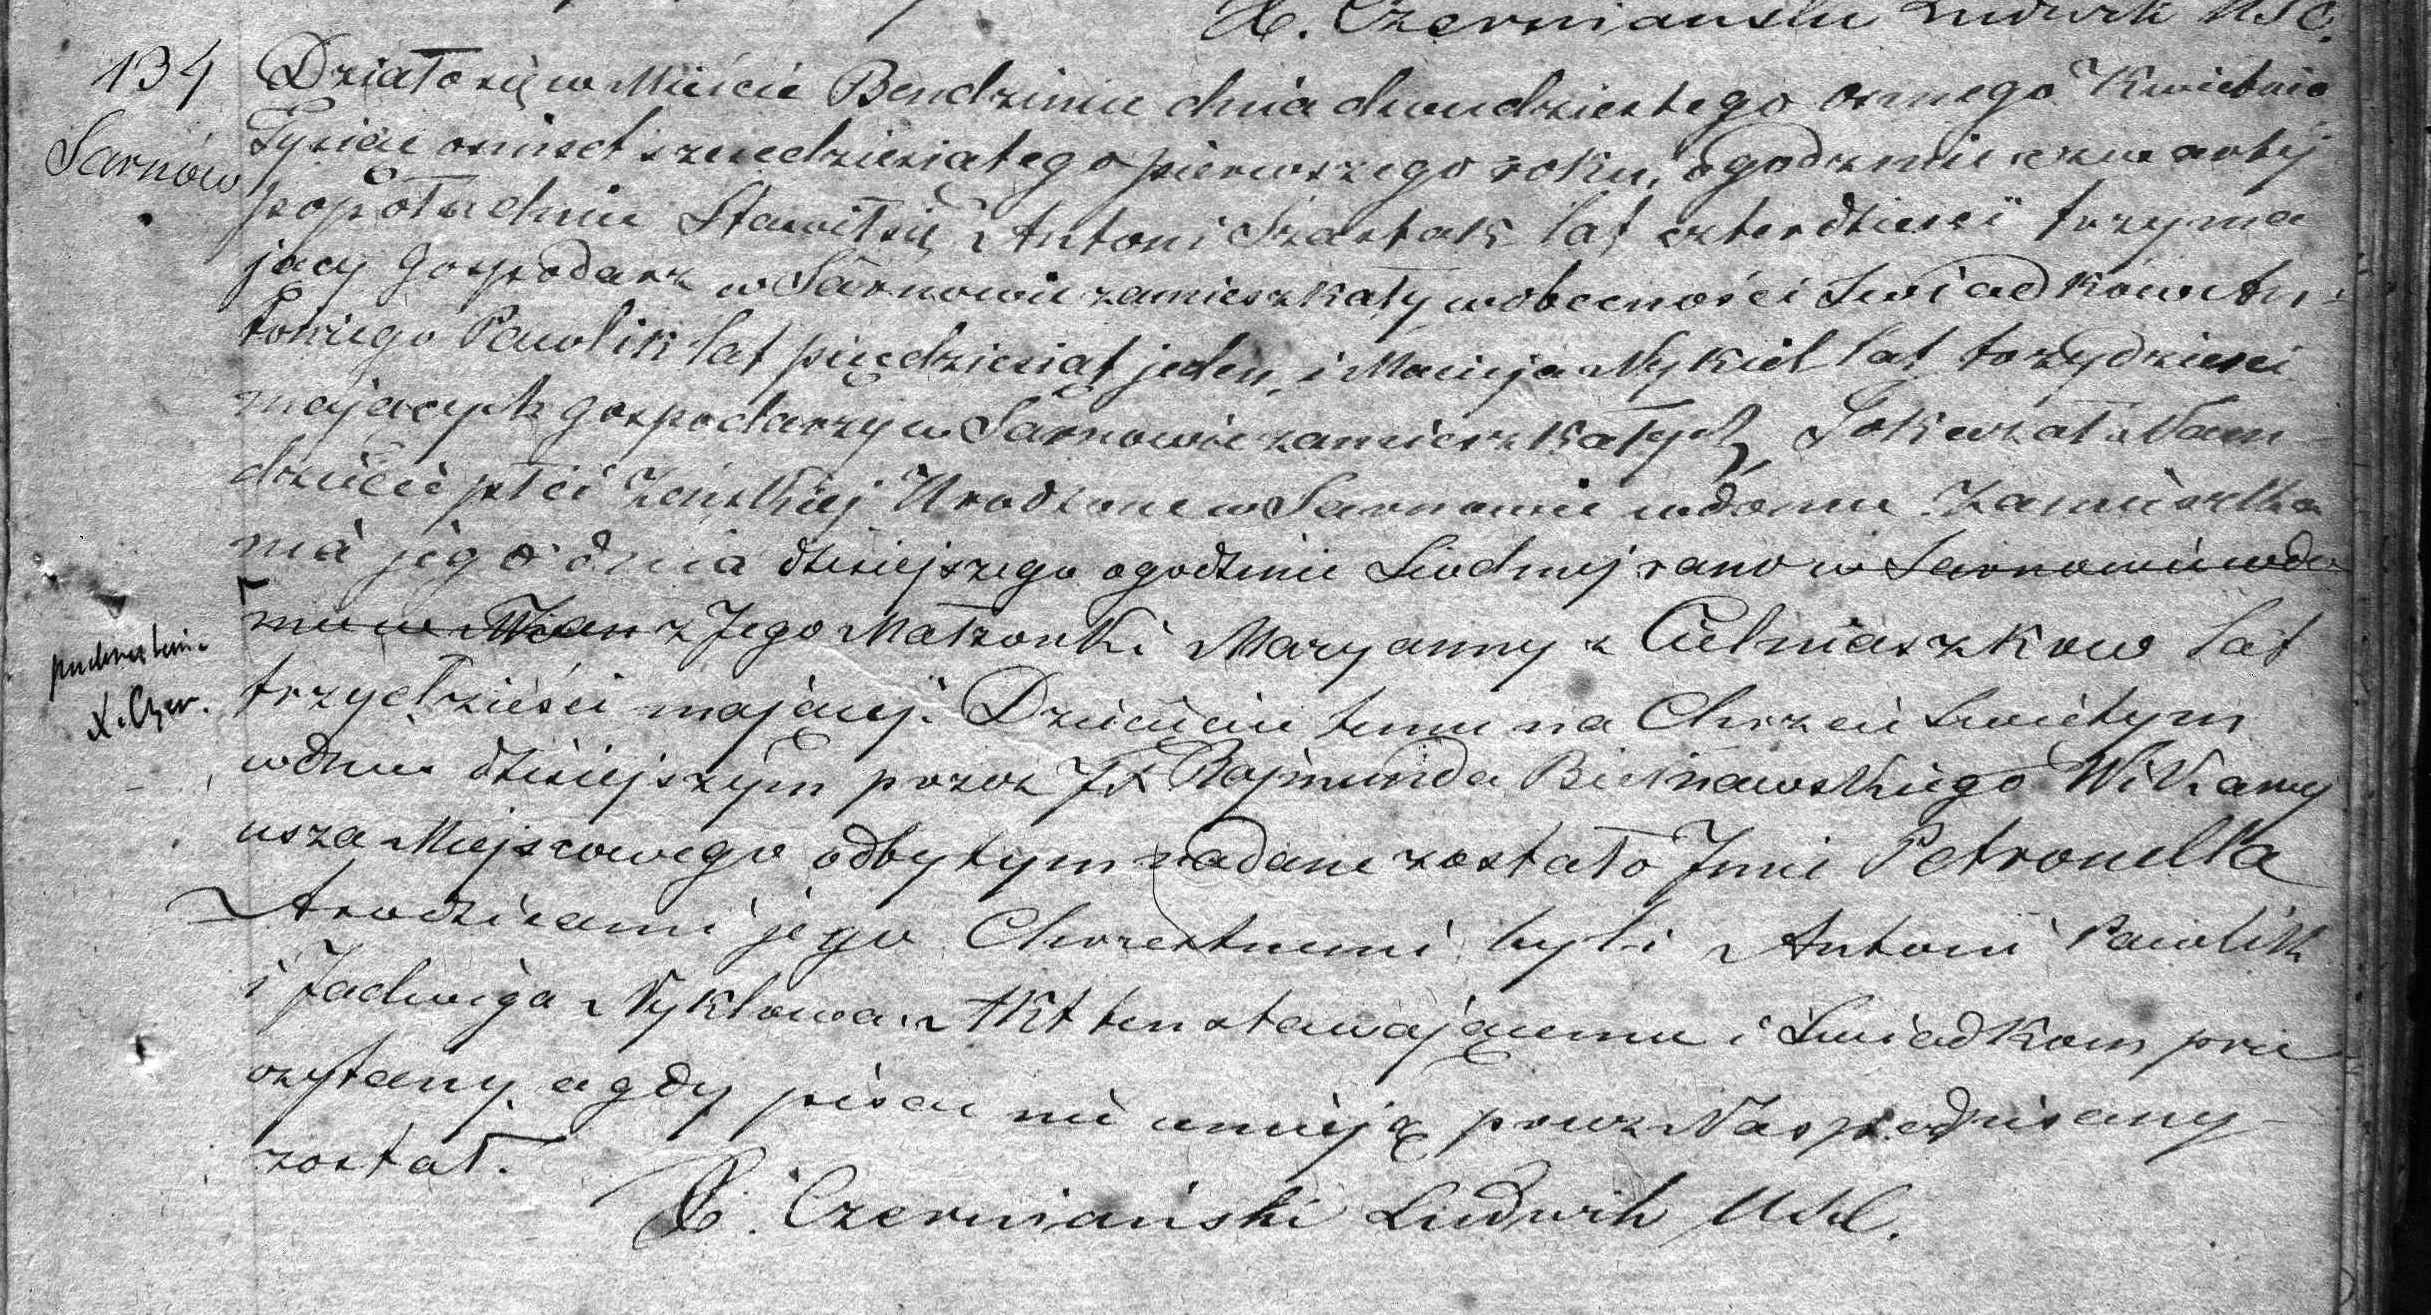 X. Czerniański Ludwik USC.
134
Sarnów
Działo się w Mieście Bendzinie dnia dwudziestego osmego Kwietnia
Tysiąc osmset szescdziesiątego pierwszego roku, o godzinie czwartéj
popołudniu Stawił się Antoni Szastak lat czterdzieści trzy ma
jący Gospodarz w Sarnowie zamieszkały w obecności Swiadków An-
toniego Pawlik lat pięcdziesiąt jeden, i Macieja Nykiel lat trzydzieści
mających gospodarzy w Sarnowie zamieszkałych Jokazał Nam
dziécie płci żeńskiej Urodzone w Sarnowie w domu Zamieszka
nia jego dnia dzisiejszego o godzinie Siodmej rano w Sarnowie w do
mu w z Jego Małżonki Maryanny z Cielniaszkow lat
podkreslenie
X. Czer.
trzydzieści mającej. Dziecięciu temu na Chrzcie Swiętym
w dniu dzisiejszym przez JX Rajmunda Biernawskiego Wikary
usza Miejscowego odbytym nadane zostało Jmie Petronella
A rodzicami jego Chrzestnemi byli Antoni Pawlik
i Jadwiga Nyklowa. Akt ten stawającemu i Swiadkom prze
czytany, a gdy pisać nie umieją przez Nas podpisany
został.
X. Czerniański Ludwik USC.